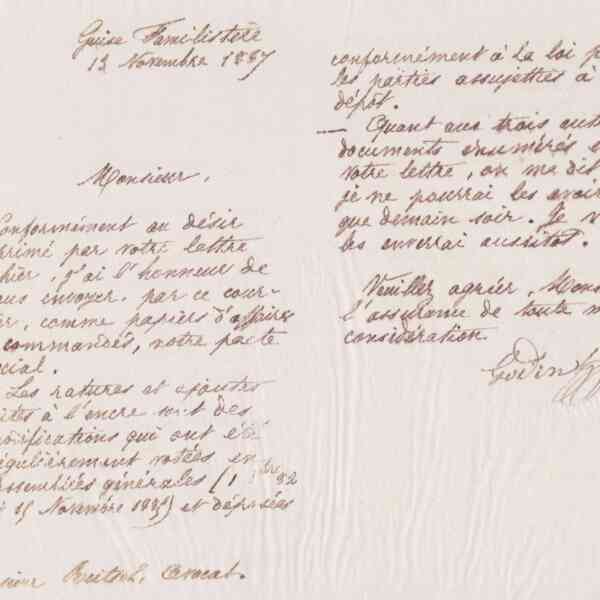 Guise Familistère
13 Novembre 1887
Monsieur,
Conformément au désir
primé par votre lettre
hier, j'ai l'honneur de
ous envoyer, par ce cour-
er, comme papiers d'affaires
commandés, notre pacte
cial.
Les ratures et ajoutés
ites à l'encre sont des
odifications qui ont été
égulièrement votées en
assemblées générales (1 82
15 Novembre ) et déposées
sieur avocat.
conformément à la loi p
les parties assujetties à
dépôt.
— Quant aux trois aut
documents énumérés
votre lettre, on me dit
je ne pourrai les avoir
que demain soir. Je v
les enverrai aussitôt.
Veuillez agréer, Mons
l'assurance de toute m
considération.
Godin